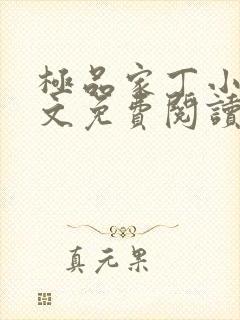 極品家丁小
文免費閱讀
真元果